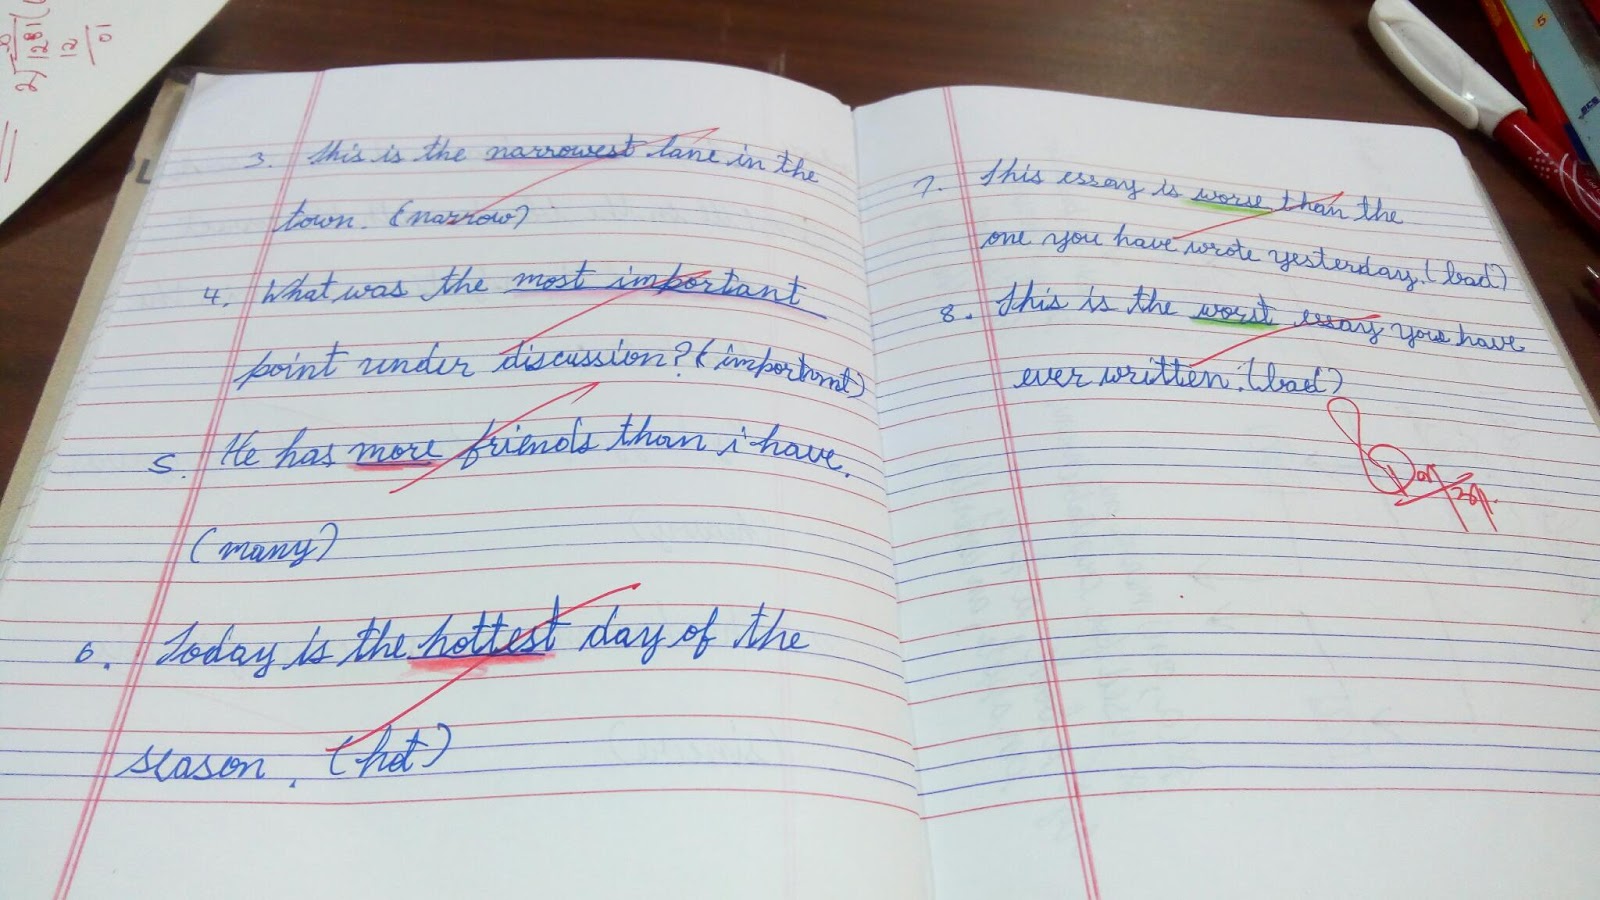 3. This is the narrowest lane in the
town. (narrow)
4. What was the most important
point under discussion? (important)
5. He has more friends than i have.
(many)
6. Today is the hottest day of the
season. (hot)
7. This essay is worse than the
one you have wrote yesterday. (bad)
8. This is the worst essay you have
ever written. (bad)